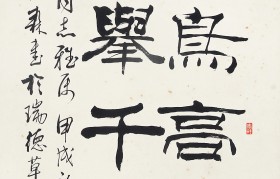 鳥高
舉千
同志雅属 甲戌
森書於瑞德草